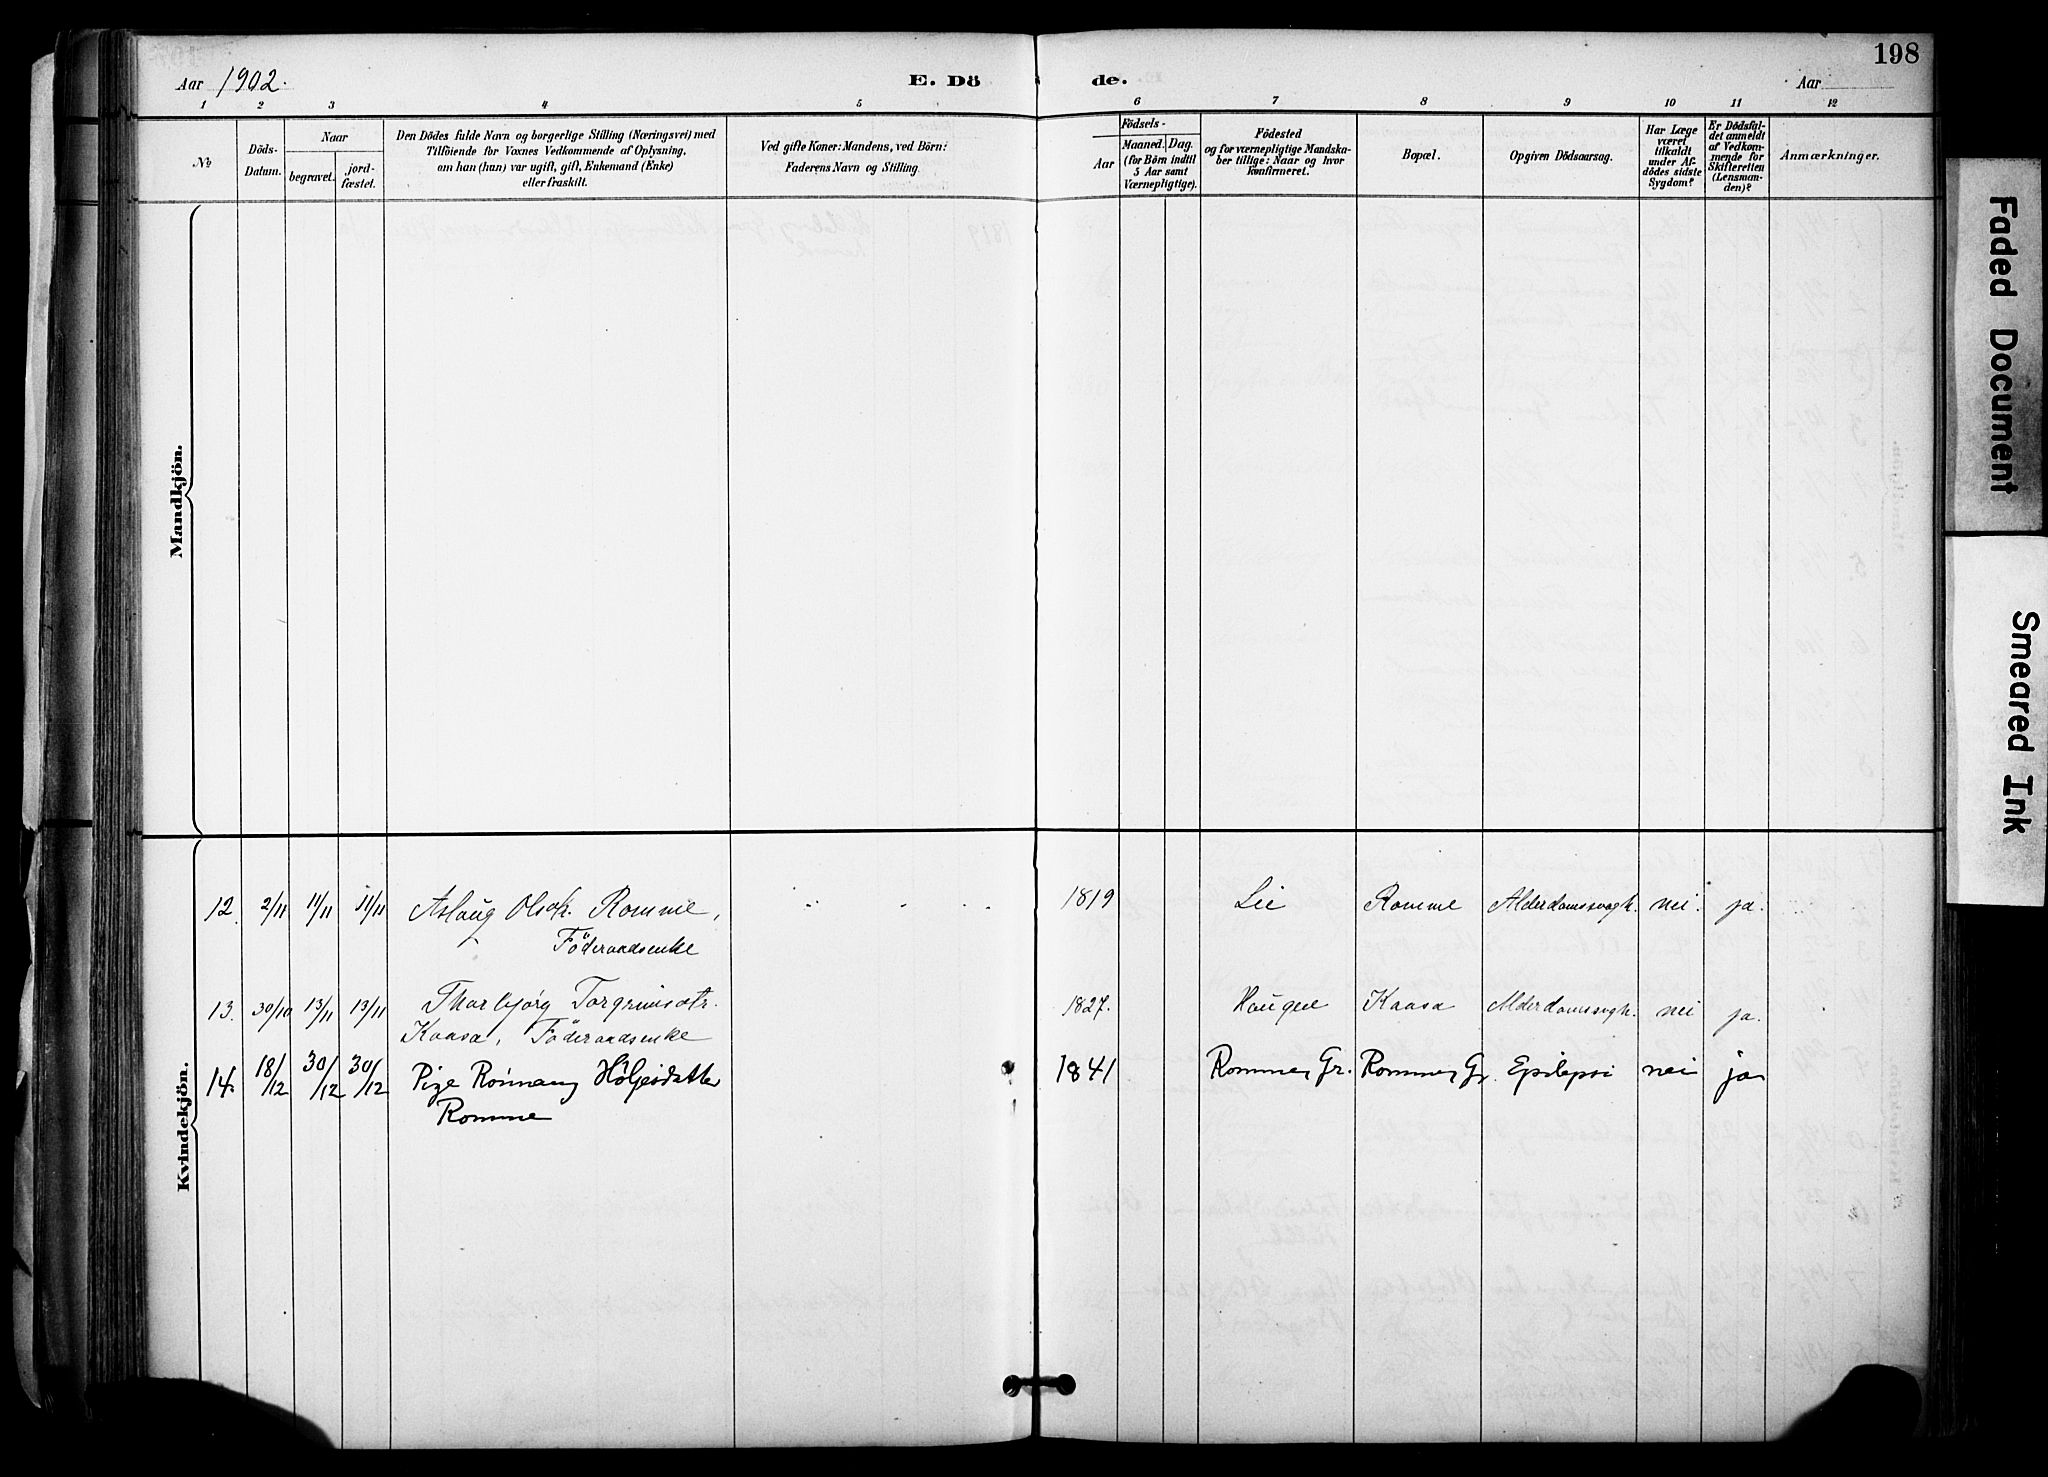 198
Aar 1902.
E. Dö de.
Aar
1 2 3 4 5 6 7 8 9 10 11 12
No
Döds-
Datum.
Naar
begravet.
jord-
fæstet.
Den Dödes fulde Navn og borgerlige Stilling (Næringsvei) med
Tilföiende for Voxnes Vedkommende af Oplysning,
om han (hun) var ugift, gift, Enkemand (Enke)
eller fraskilt.
Ved gifte Koner: Mandens, ved Börn:
Faderens Navn og Stilling.
Födsels-
Aar
Maaned. Dag.
(for Börn indtil
5 Aar samt
Værnepligtige).
Födested
og for værnepligtige Mandska-
ber tillige: Naar og hvor
konfirmeret.
Bopæl.
Opgiven Dödsaarsag.
Har Læge
været
tilkaldt
under Af-
dödes sidste
Sygdom?
Er Dödsfal-
det anmeldt
af Vedkom-
mende for
Skifteretten
(Lensman-
den)?
Anmærkninger.
Mandkjön.
Kvindekjön.
12. 2/11 11/11 11/11 Aslaug Olsdt. Romme, 1819 Lie Romme Alderdomssvagh. nei. ja.
Föderaadsenke
13. 30/10 13/11 13/11 Thorbjörg Torgrimsdtr. 1827. Haugen Kaasa Alderdomssvgh. nei ja.
Kaasa, Föderaadsenke
14. 18/12 30/12 30/12 Pige Rönnaug Hölgesdatter 1841 Romme Gr. Romme Gr. Epilepsi nei ja
Romme
Faded Document
Smeared Ink